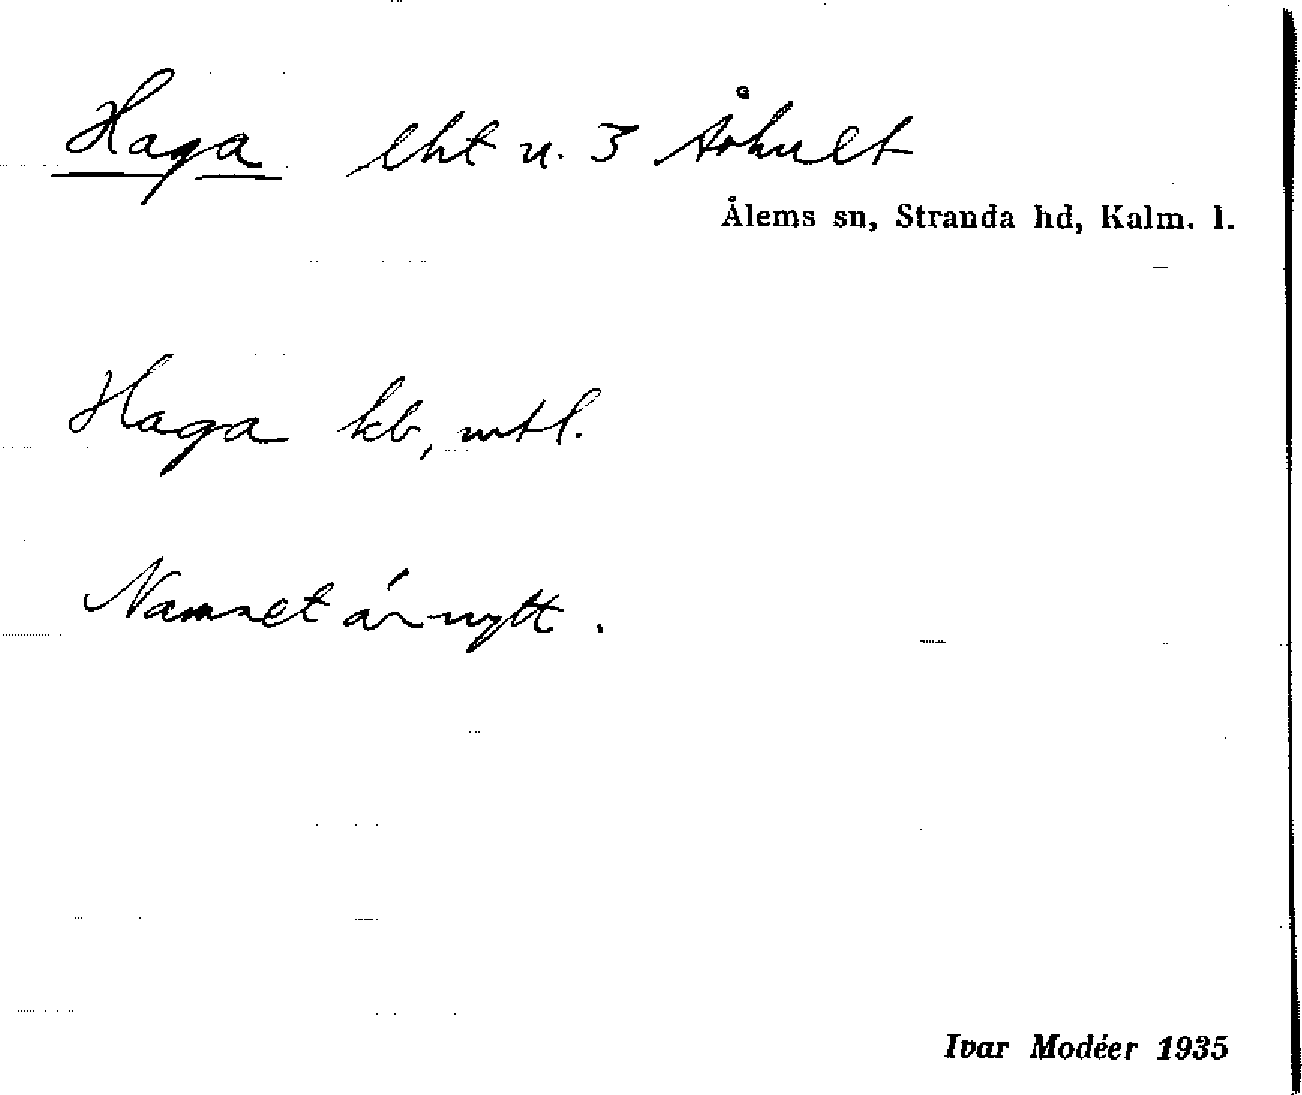 Haga lht u. 3 Åhult
Ålems sn, Stranda hd, Kalm. l.
Haga kb, mtl.
Namnet är nytt.
Ivar Modéer 1935